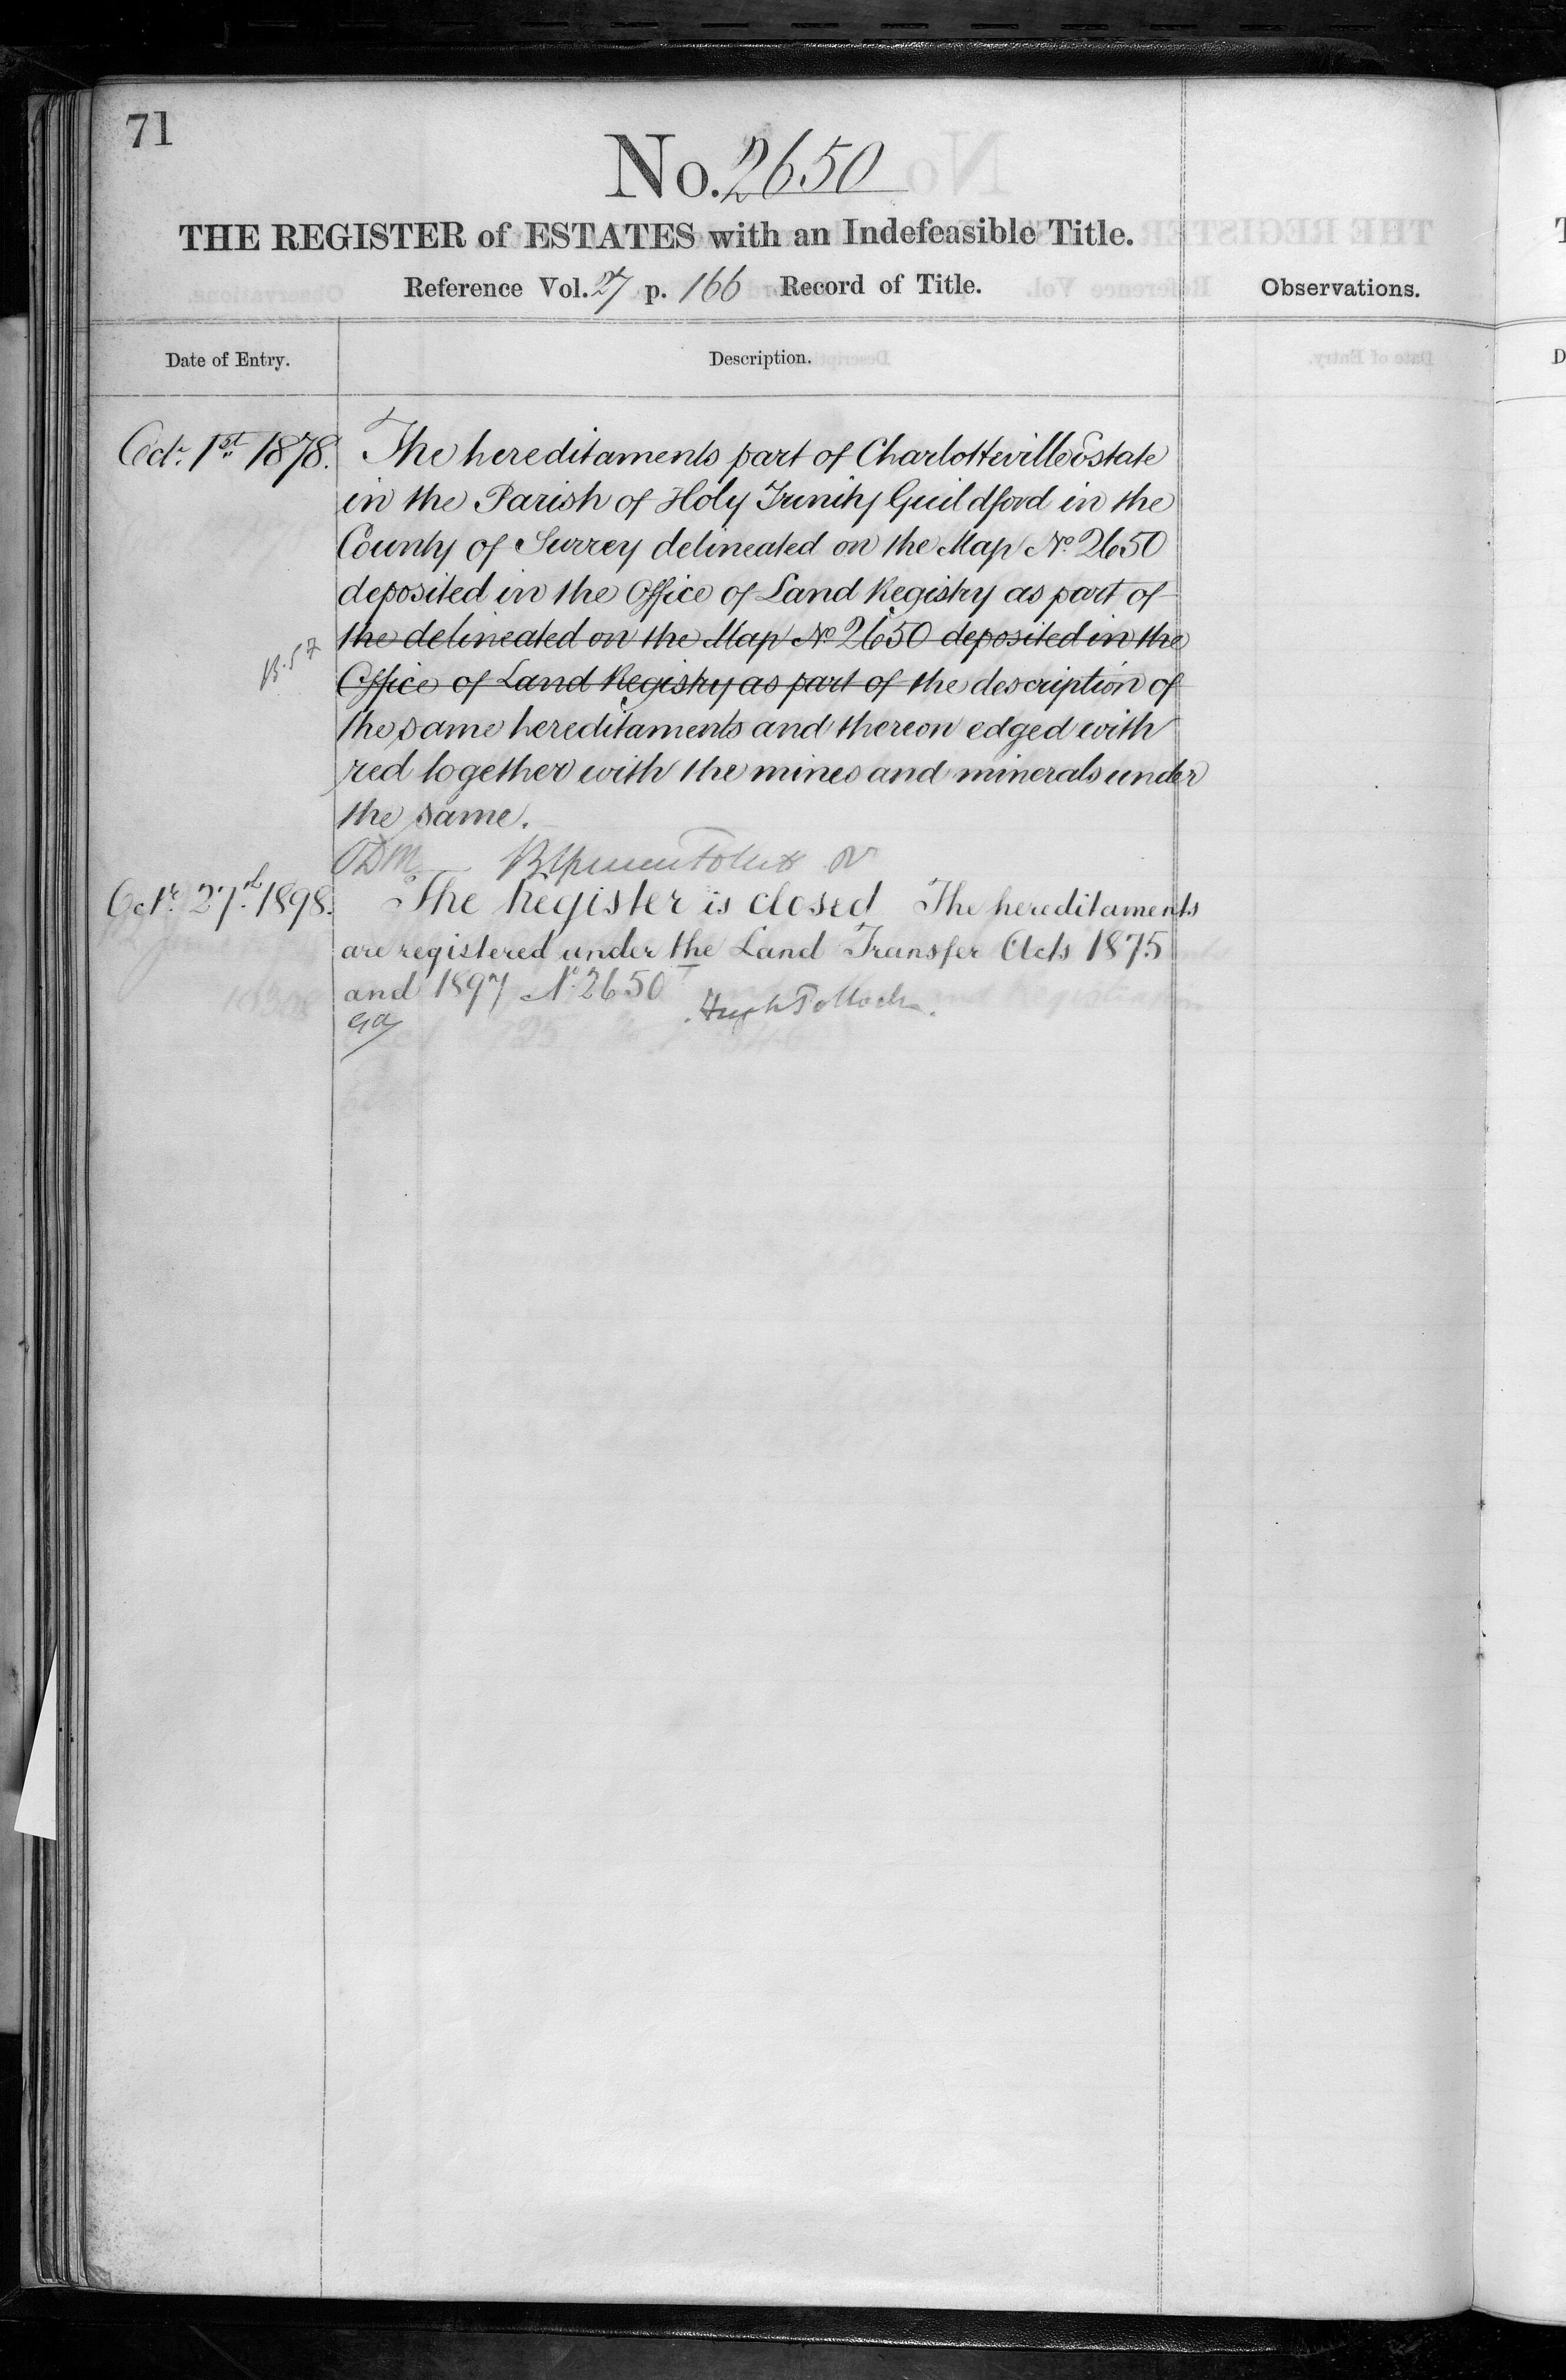 71
No. 2650
THE REGISTER of ESTATES with an Indefeasible Title.
Reference Vol. 27 p. 166 Record of Title.
Observations.
Date of Entry.
Description.
Octr. 1st 1878.
The hereditaments part of Charlotteville Estate
in the Parish of Holy Trinity Guildford in the
County of Surrey delineated on the Map No. 2650
deposited in the Office of Land Registry as part of
the delineated on the Map No. 2650 deposited in the
Office of Land Registry as part of the description of
the same hereditaments and thereon edged with
red together with the mines and minerals under
the same.
Octr. 27th 1898.
The Register is closed The hereditaments
are registered under the Land Transfer Acts 1875
and 1897 No. 2650
Hugh Pollock.